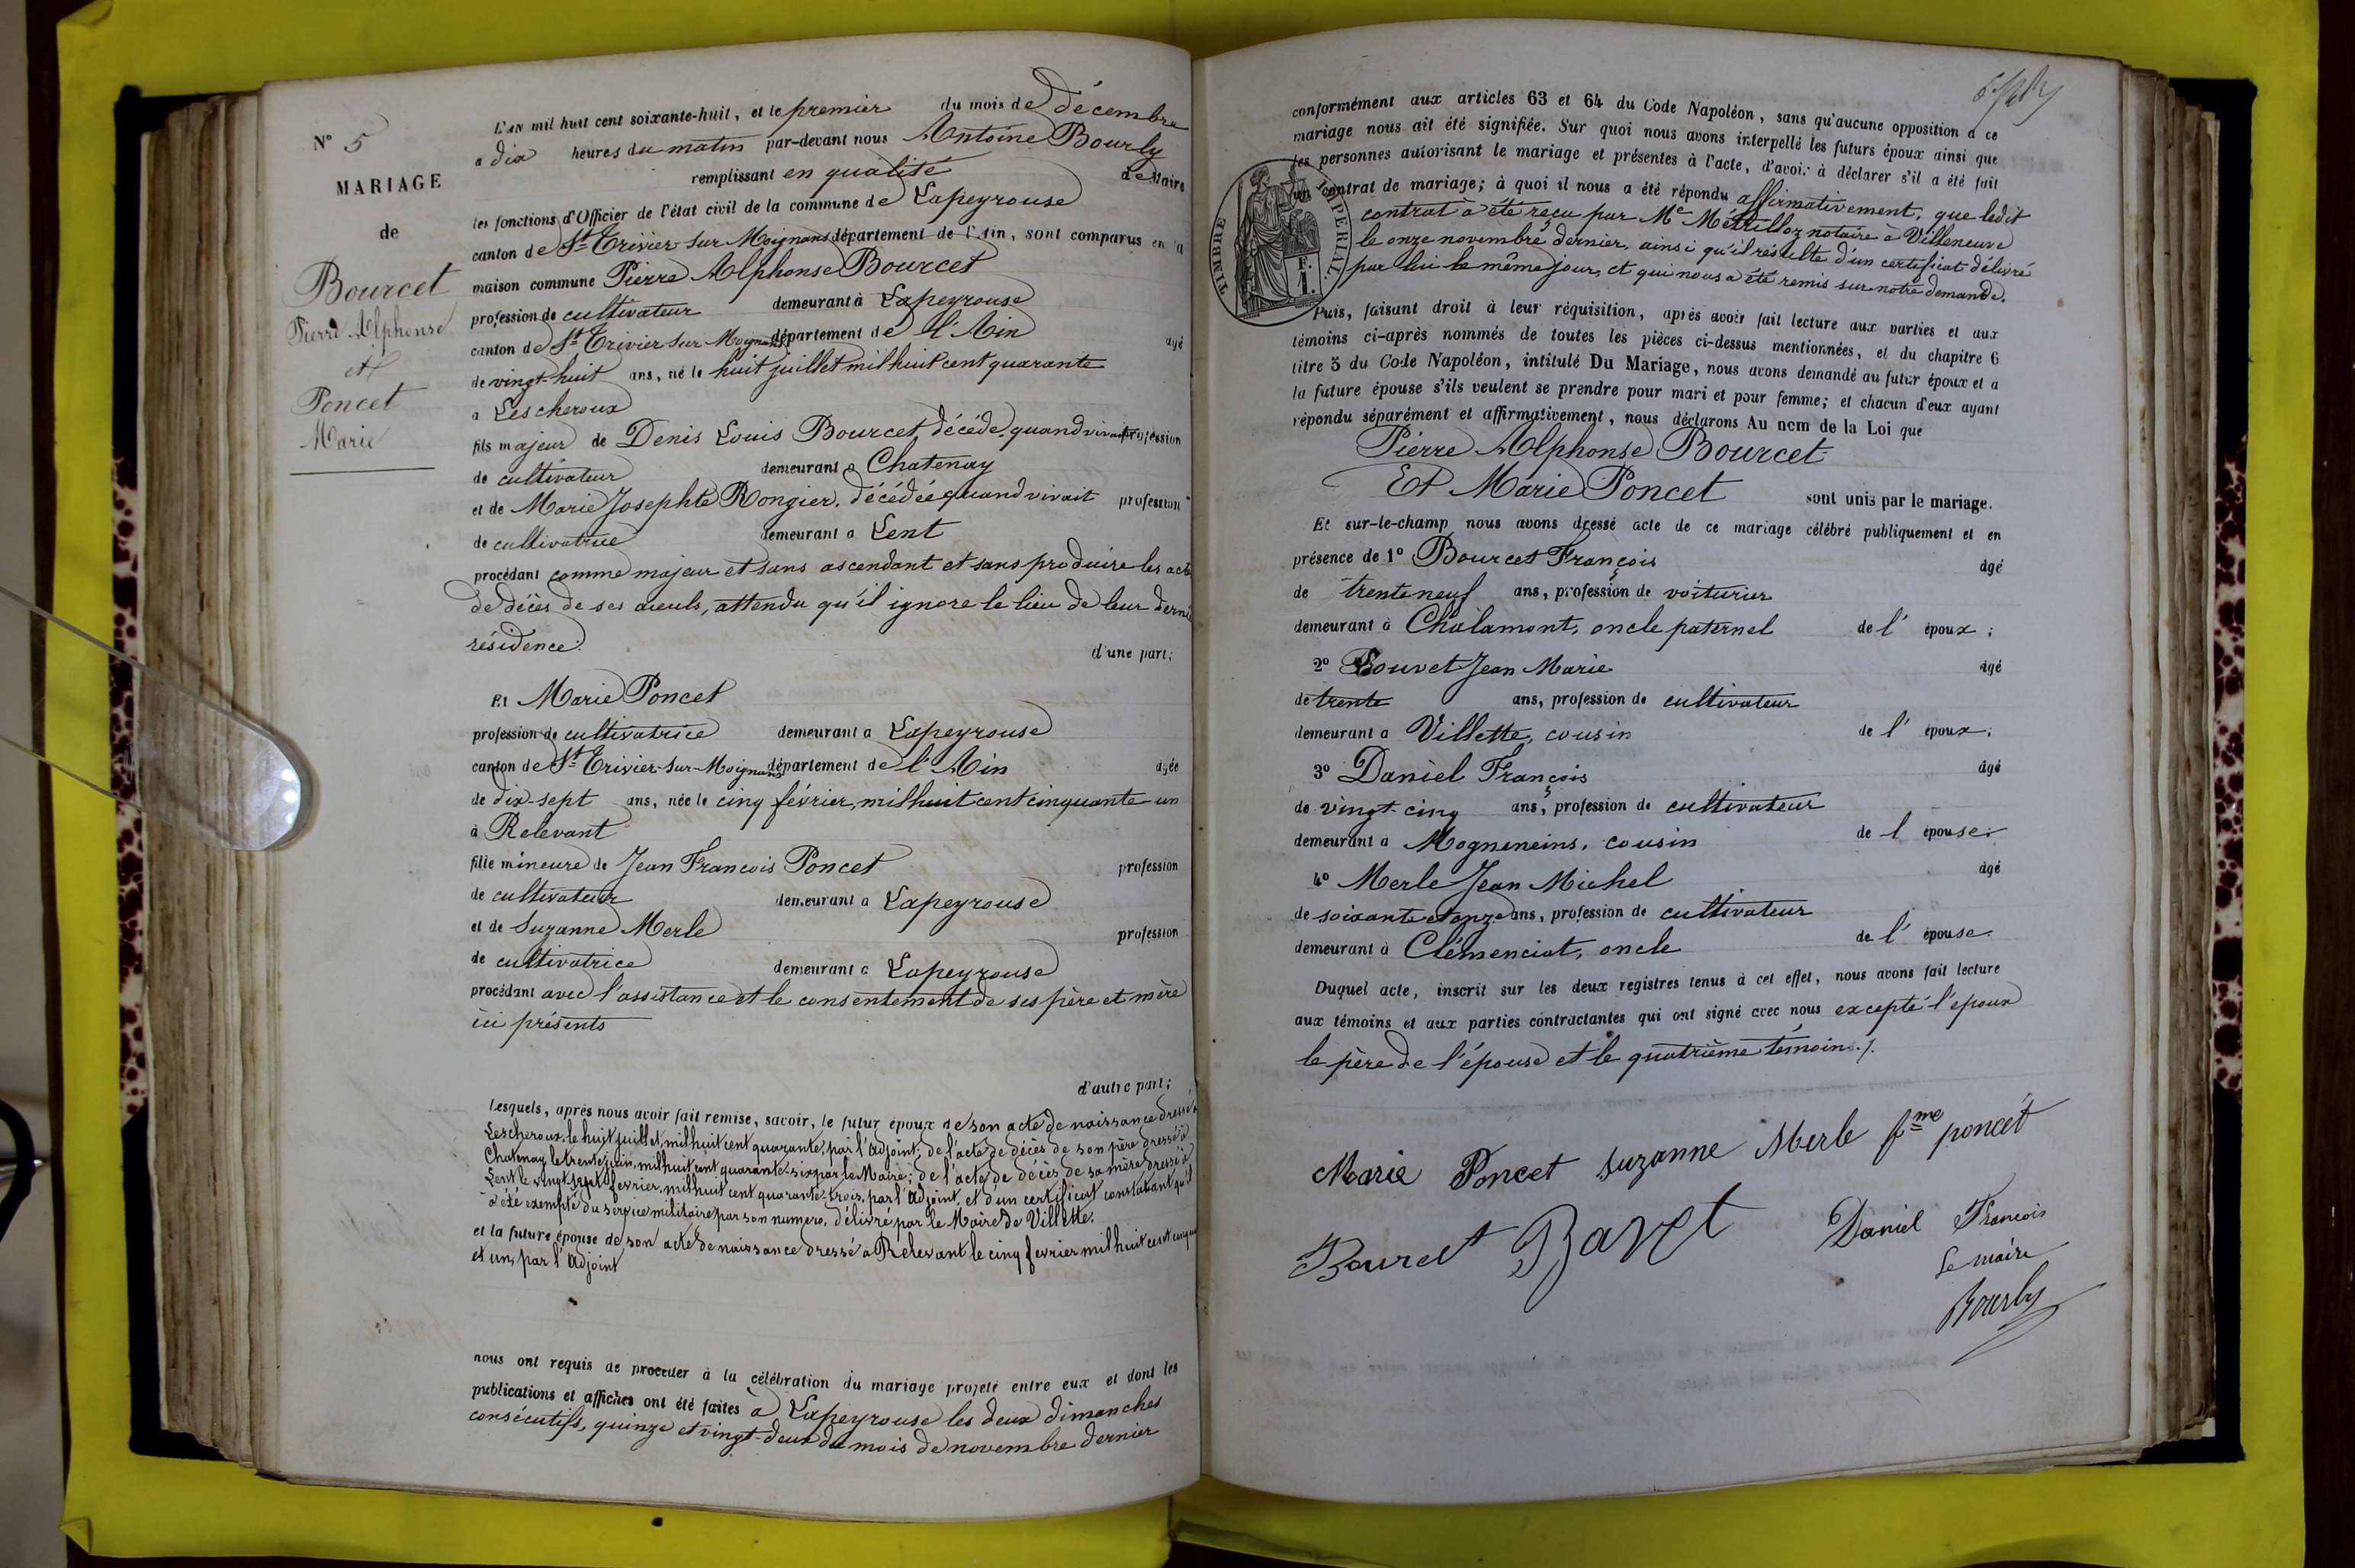 N° 5
MARIAGE
de
Bourcet
Pierre Alphonse
et
Poncet
Marie
L'AN mil huit cent soixante-huit, et le premier du mois de décembre
a dix heures du matin par-devant nous Antoine Bourly
remplissant en qualité de Maire
les fonctions d'Officier de l'état civil de la commune de Lapeyrouse
canton de St Trivier sur Moignans département de l'Ain, sont comparus en la
maison commune Pierre Alphonse Bourcet
profession de cultivateur demeurant à Lapeyrouse
canton de St Trivier sur Moignans département de l'Ain âgé
de vingt-huit ans, né le huit juillet mil huit cent quarante
a Lescheroux
fils majeur de Denis Louis Bourcet, décédé, quand vivait profession
de cultivateur demeurant a Chatenay
et de Marie Josephte Rongier, décédée quand vivait profession
de cultivatrice demeurant a Lent
procédant comme majeur et sans ascendant et sans produire les actes
de décès de ses aieuls, attendu qu'il ignore le lieu de leur dernière
résidence. d'une part;
Et Marie Poncet
profession de cultivatrice demeurant a Lapeyrouse
canton de St Trivier-sur-Moignans département de l'Ain agée
de dix-sept ans, née le cinq février, mil huit cent cinquante-un
à Relevant
fille mineure de Jean Francois Poncet profession
de cultivateur demeurant a Lapeyrouse
et de Suzanne Merle profession
de cultivatrice demeurant a Lapeyrouse
procédant avec l'assistance et le consentement de ses père et mère
ici présents
d'autre part;
Lesquels, après nous avoir fait remise, savoir, le futur époux de son acte de naissance dressé à
Lescheroux, le huit juillet, mil huit cent quarante, par l'Adjoint; de l'acte de décès de son père dressé à
Chatenay le trente juin, mil huit cent quarante-six par le Maire; de l'acte de décès de sa mère dressé à
Lent le vingt-sept fevrier, mil huit cent quarante-trois, par l'Adjoint, et d'un certificat constatant qu'il
a été exempté du service militaire par son numero, délivré par le Maire de Villette.
et la future épouse de son acte de naissance dressé a Relevant le cinq fevrier mil huit cent cinquante
et un, par l'Adjoint
nous ont requis de proceder à la célébration du mariage projeté entre eux et dont les
publications et affiches ont été faites à Lapeyrouse les deux dimanches
consécutifs, quinze et vingt-deux du mois de novembre dernier
conformément aux articles 63 et 64 du Code Napoléon, sans qu'aucune opposition a ce
mariage nous ait été signifiée. Sur quoi nous avons interpellé les futurs époux ainsi que
les personnes autorisant le mariage et présentes à l'acte, d'avoir à déclarer s'il a été fait
un contrat de mariage; à quoi il nous a été répondu affirmativement, que ledit
contrat a été reçu par Me Métrilloz notaire à Villeneuve
le onze novembre dernier, ainsi qu'il résulte d'un certificat délivré
par lui le même jour, et qui nous a été remis sur notre demande.
TIMBRE IMPERIAL
F.
1.
Puis, faisant droit à leur réquisition, après avoir fait lecture aux parties et aux
témoins ci-après nommés de toutes les pièces ci-dessus mentionnées, et du chapitre 6
titre 5 du Code Napoléon, intitulé Du Mariage, nous avons demandé au futur époux et a
la future épouse s'ils veulent se prendre pour mari et pour femme; et chacun d'eux ayant
répondu séparément et affirmativement, nous déclarons Au nom de la Loi que
Pierre Alphonse Bourcet
Et Marie Poncet sont unis par le mariage.
Et sur-le-champ nous avons dressé acte de ce mariage célébré publiquement et en
présence de 1° Bourcet François âgé
de trente neuf ans, profession de voiturier
demeurant à Chalamont, oncle paternel de l' époux;
2° Bouvet Jean Marie âgé
de trente ans, profession de cultivateur
demeurant a Villette, cousin de l' époux;
3° Daniel François âgé
de vingt-cinq ans, profession de cultivateur
demeurant a Mogneneins, cousin de l épouse;
4° Merle Jean Michel âgé
de soixante et onze ans, profession de cultivateur
demeurant à Clémenciat, oncle de l' épouse.
Duquel acte, inscrit sur les deux registres tenus à cet effet, nous avons fait lecture
aux témoins et aux parties contractantes qui ont signé avec nous excepté l'époux
le père de l'épouse et le quatrième témoin./.
Marie Poncet suzanne Merle fme poncet
Bourcet Bavet Daniel Francois
Le maire
Bourly